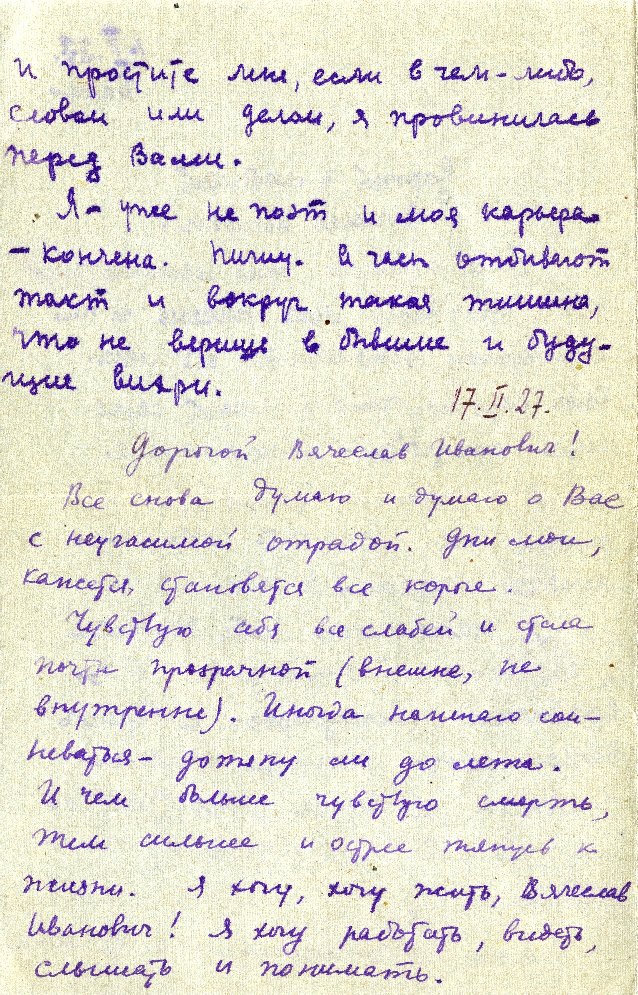 и простите мне, если в чем-либо,
словом или делом, я провинилась
перед Вами.
Я – уже не поэт и моя карьера
– кончена. Пишу. А часы отбивают
такт и вокруг такая тишина,
что не верится в бывшие и буду-
щие вихри.
17.II.27.
Дорогой Вячеслав Иванович!
Все снова думаю и думаю о Вас
с неугасимой отрадой. Дни мои,
кажется, становятся все короче.
Чувствую себя все слабей и стала
почти прозрачной (внешне, не
внутренне). Иногда начинаю сом-
неваться – дотяну ли до лета.
И чем больше чувствую смерть,
тем сильнее и острее тянусь к
жизни. Я хочу, хочу жить, Вячеслав
Иванович! Я хочу работать, видеть,
слышать и понимать.